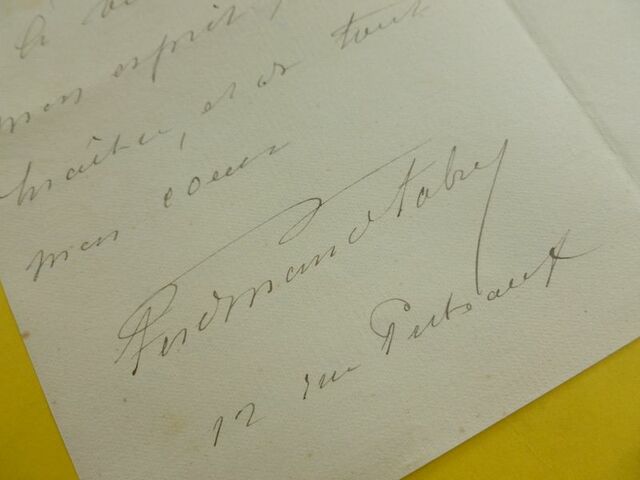 à
mon esprit,
maître, et de tout
mon coeur
Ferdinand Fabre
12 rue